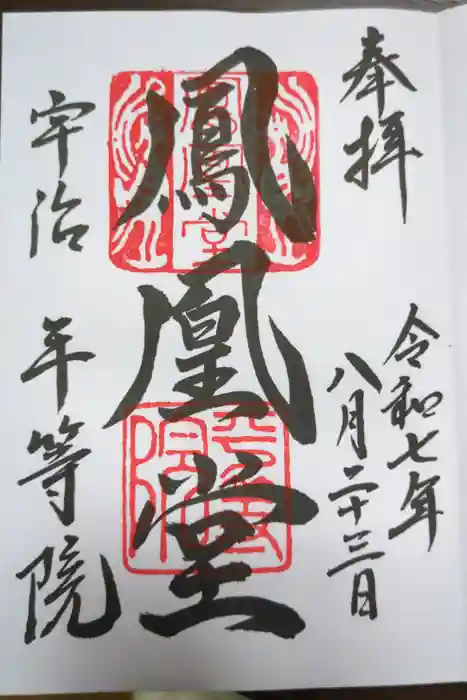 奉拝
令和七年
八月二十三日
鳳凰堂
宇治
平等院
鳳凰堂